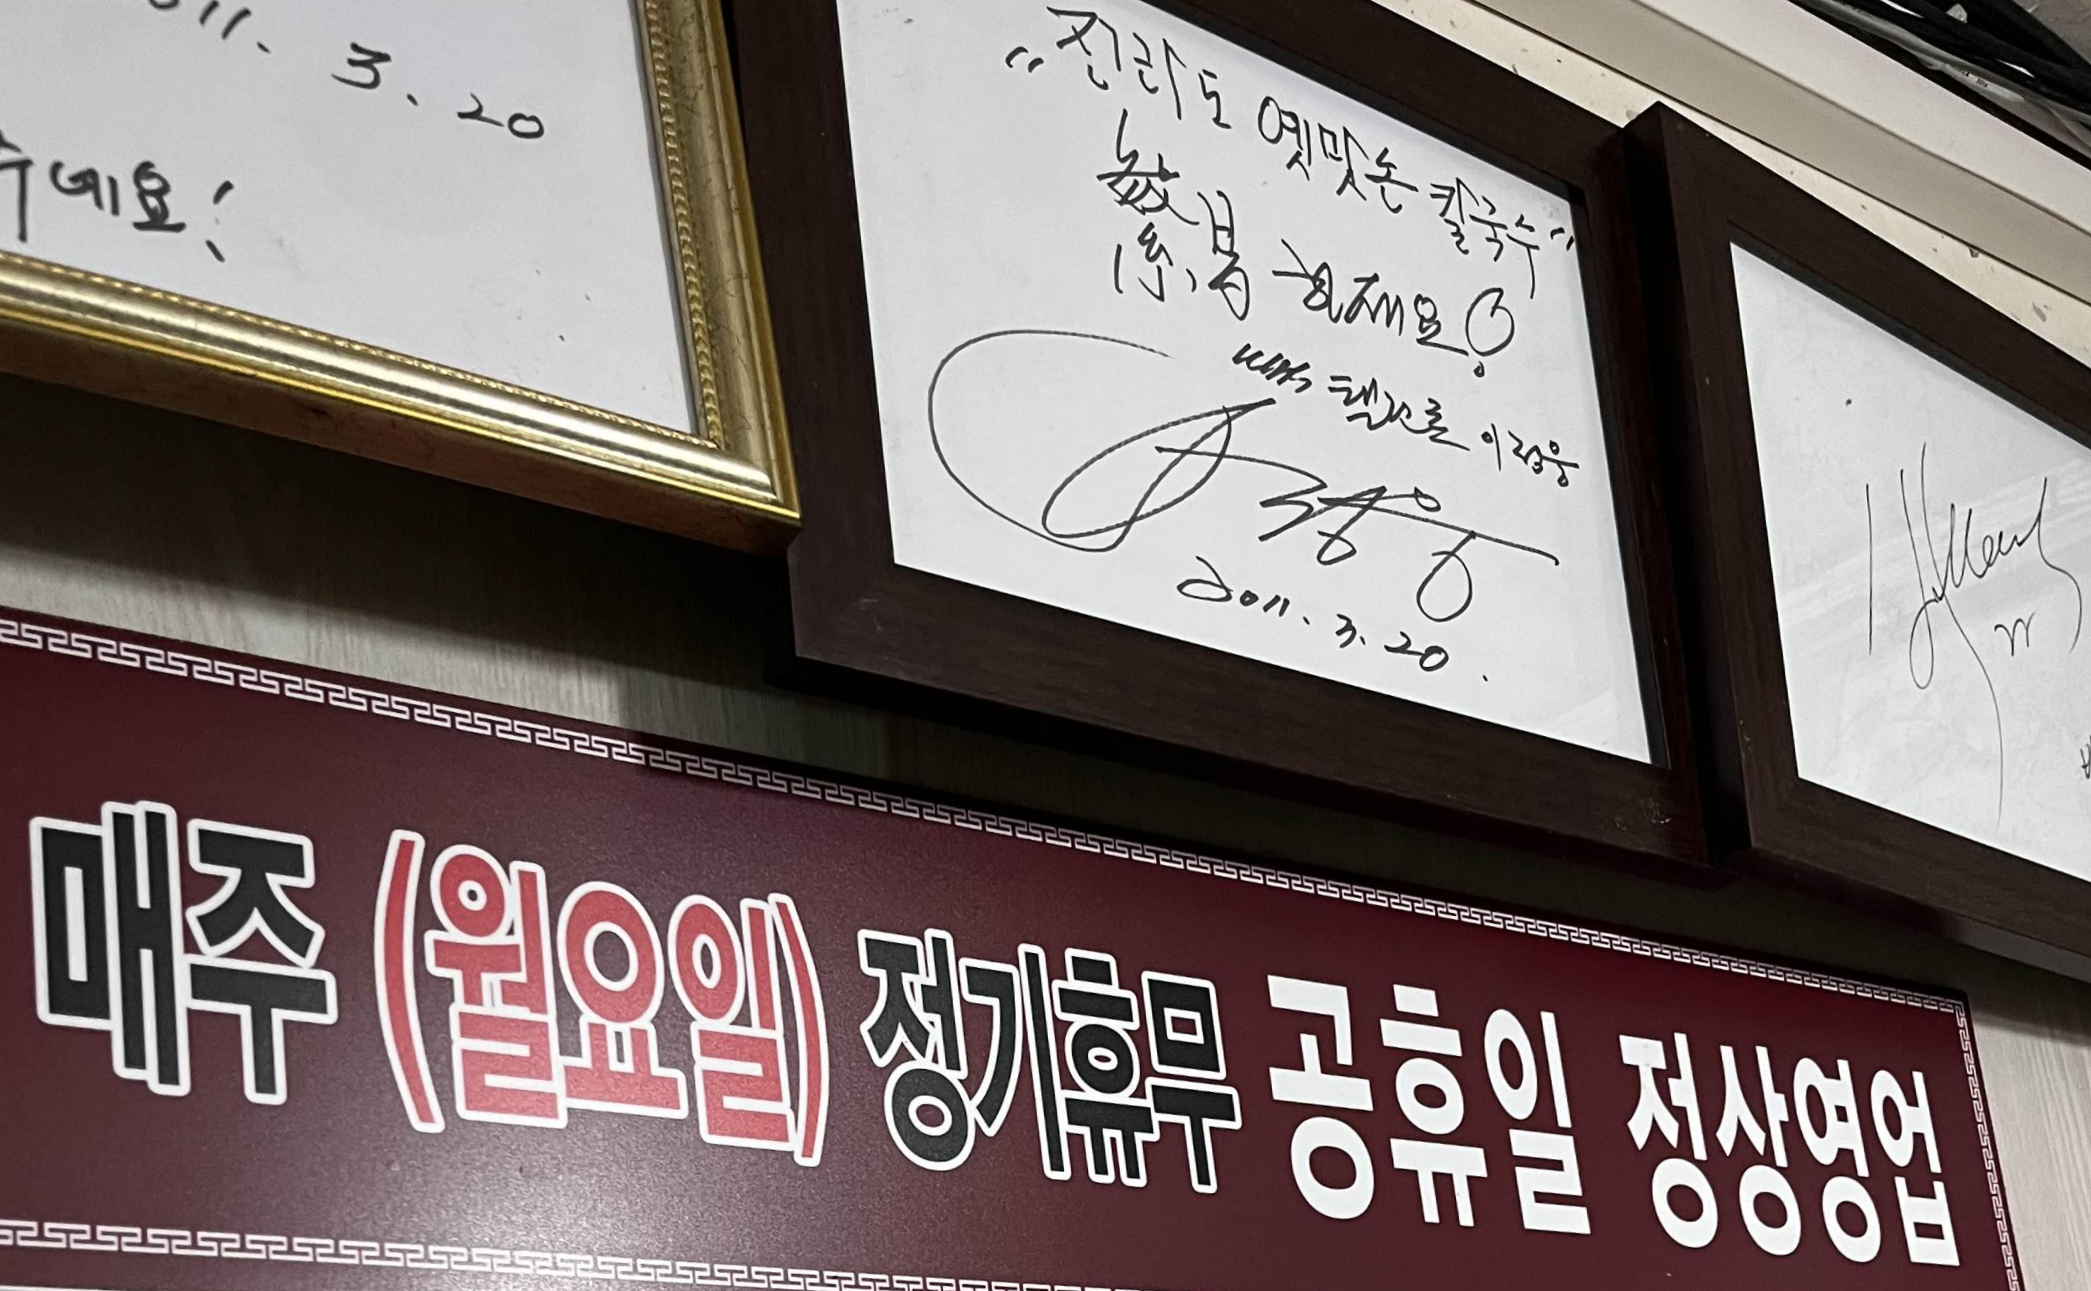 2011. 3. 20
네요!
"전라도 옛맛손칼국수"
번창 하세요!
MBC 탤런트 이정웅
2011. 3. 20.
매주 (월요일) 정기휴무 공휴일 정상영업